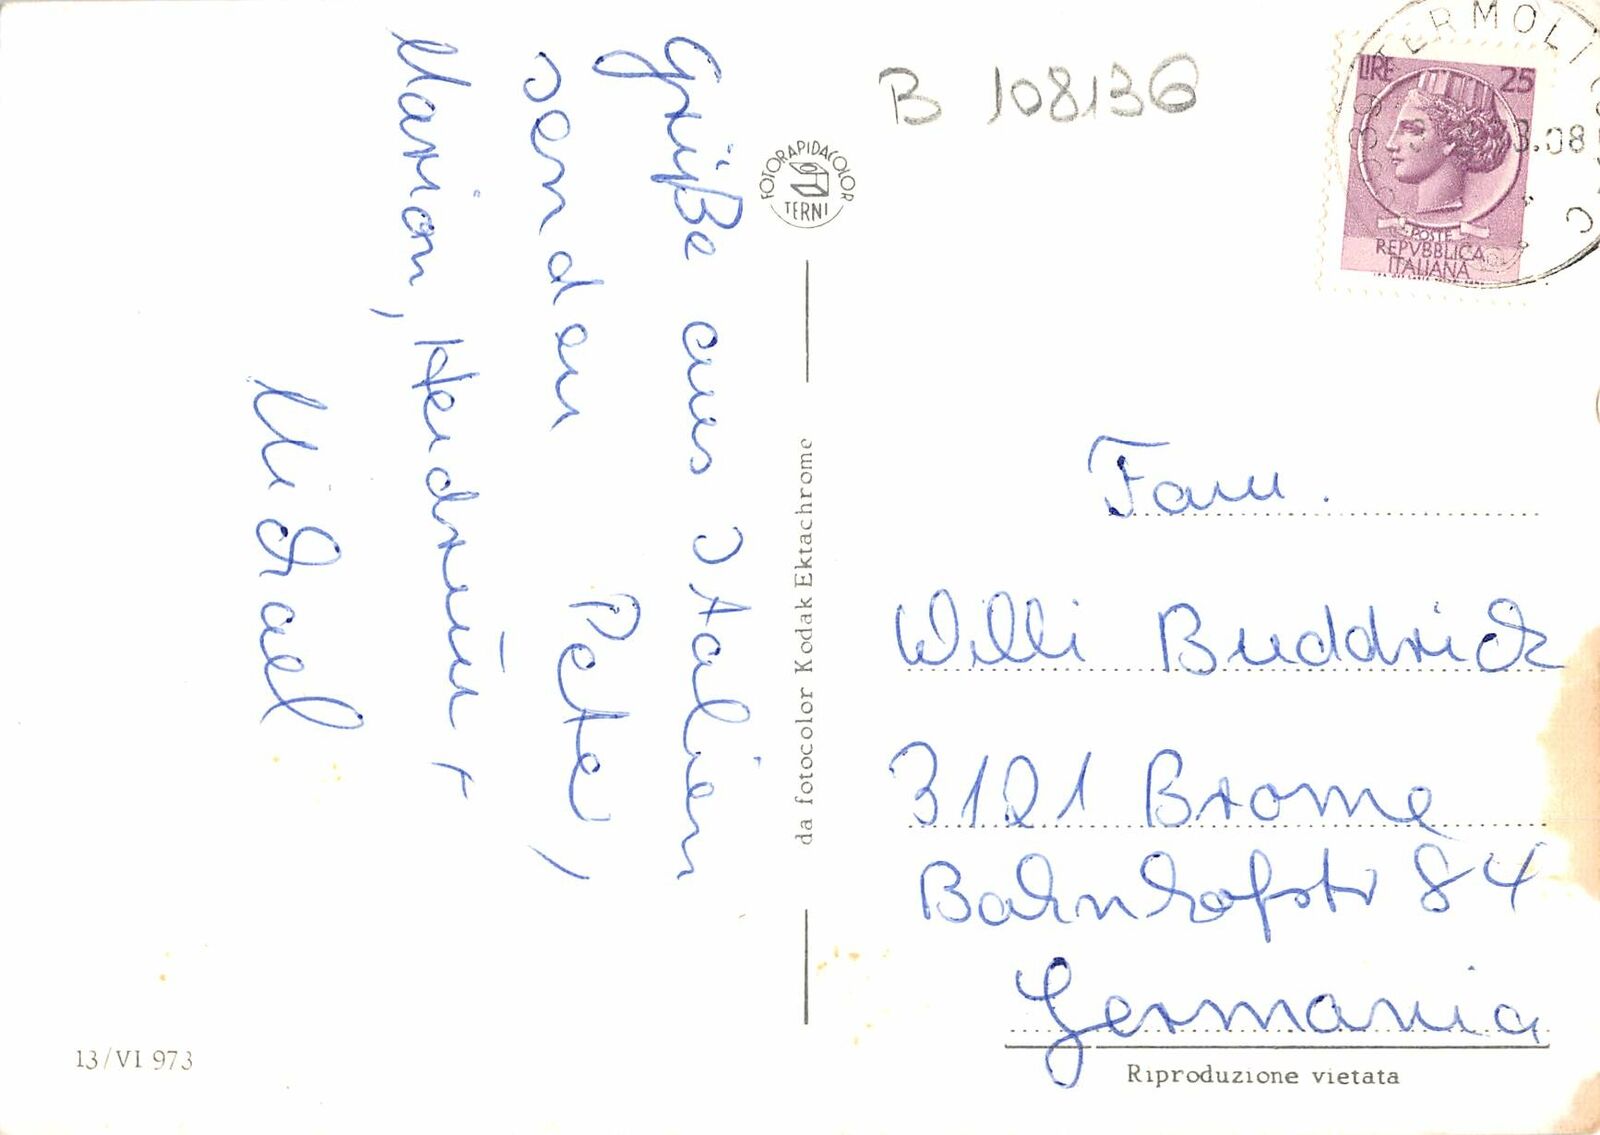 Grüße aus Italien
senden Peter,
Marion, Heidrun +
Michael
13/VI 973
FOTORAPIDACOLOR
TERNI
da fotocolor Kodak Ektachrome
B 108136
TERMOLI
LIRE 25
POSTE
REPVBBLICA
ITALIANA
Fam.
Willi Buddrick
3121 Brome
Bahnhofstr 84
Germania
Riproduzione vietata